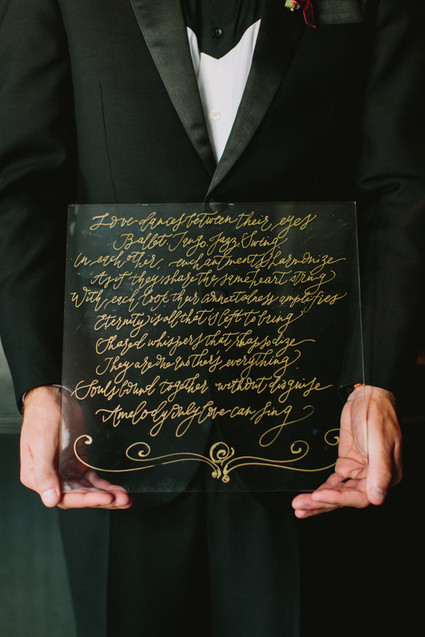 Love dances between their eyes
Ballet, Tango, Jazz, Swing
In each other, enchantments harmonize
As if they share the same heart string
With each look their connectedness amplifies
Eternity is all that's left to bring
Shared whispers that rhapsodize
They are the other's everything
Souls bound together without disguise
A melody only love can sing